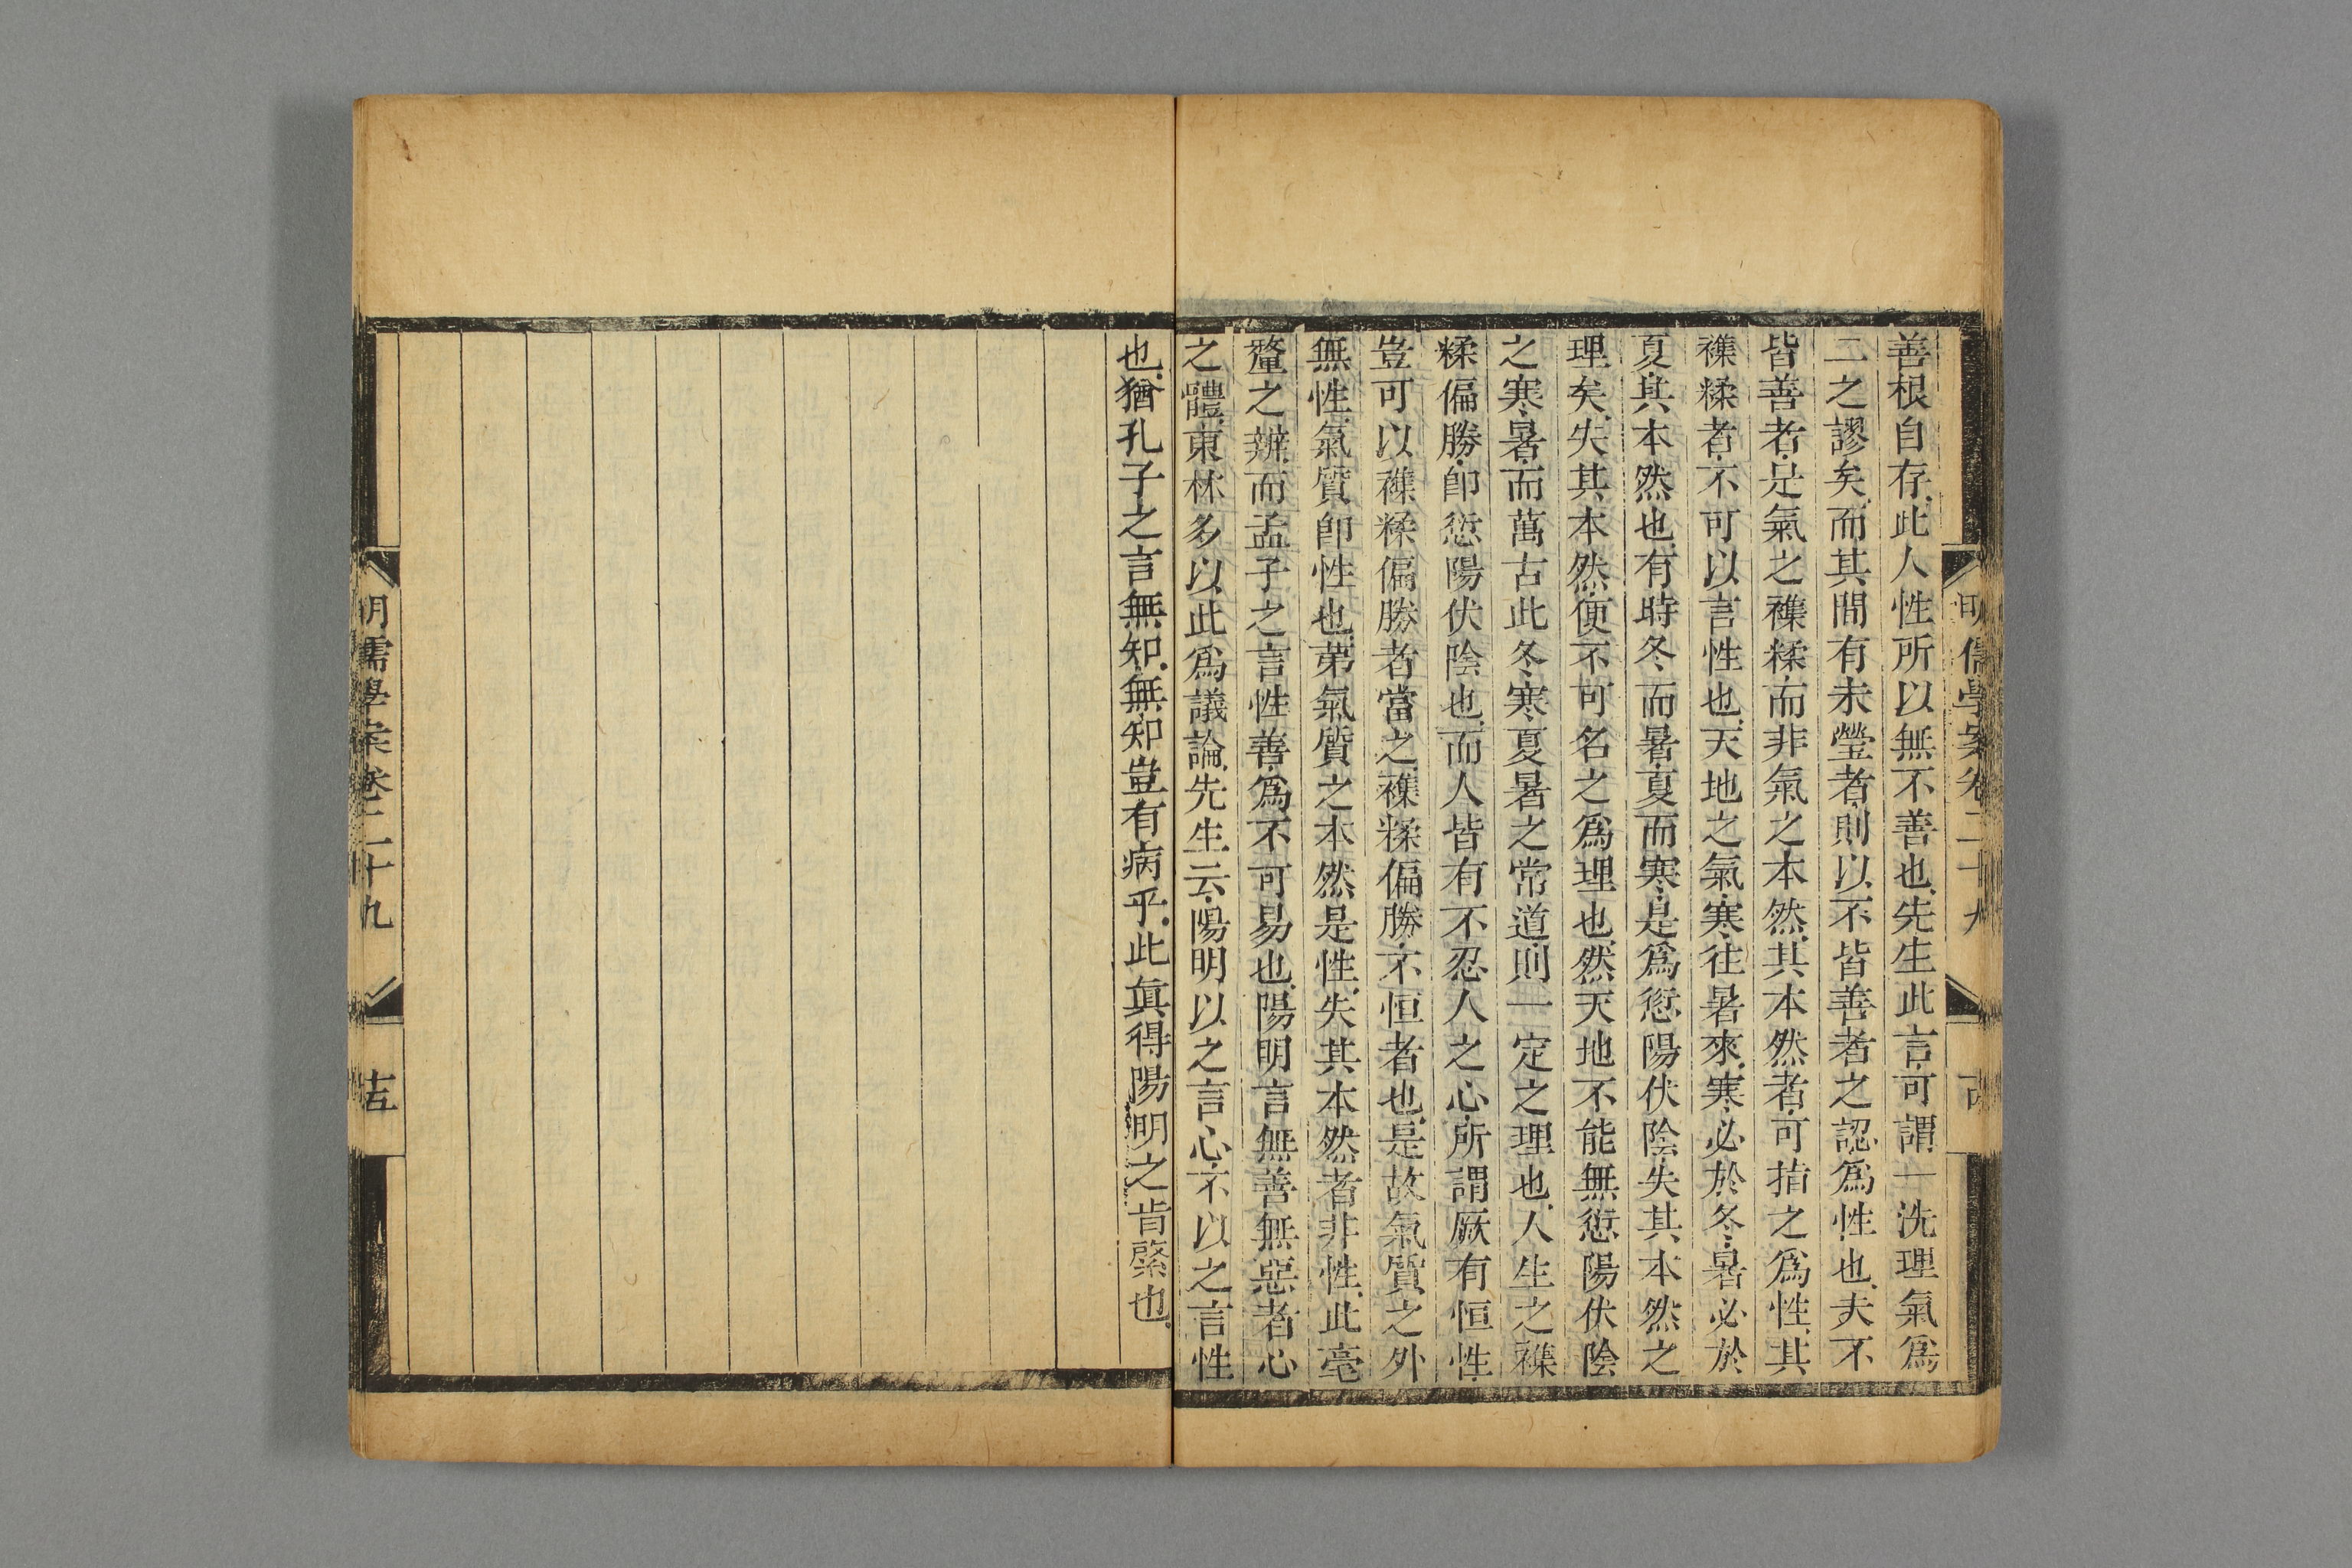 善根自存此人性所以無不善也先生此言可謂一洗理氣爲
二之謬矣而其間有未瑩者則以不皆善者之認爲性也夫不
皆善者是氣之襍糅而非氣之本然其本然者可指之爲性其
襍糅者不可以言性也天地之氣寒往暑來寒必於冬暑必於
夏其本然也有時冬而暑夏而寒是爲愆陽伏陰失其本然之
理矣失其本然便不可名之爲理也然天地不能無愆陽伏陰
之寒暑而萬古此冬寒夏暑之常道則一定之理也人生之襍
糅偏勝卽愆陽伏陰也而人皆有不忍人之心所謂厥有恒性
豈可以襍糅偏勝者當之襍糅偏勝不恒者也是故氣質之外
無性氣質卽性也第氣質之本然是性失其本然者非性此毫
釐之辨而孟子之言性善爲不可易也陽明言無善無惡者心
之體東林多以此爲議論先生云陽明以之言心不以之言性
也猶孔子之言無知無知豈有病乎此眞得陽明之肯綮也
明儒學案卷二十九
明儒學案卷二十九